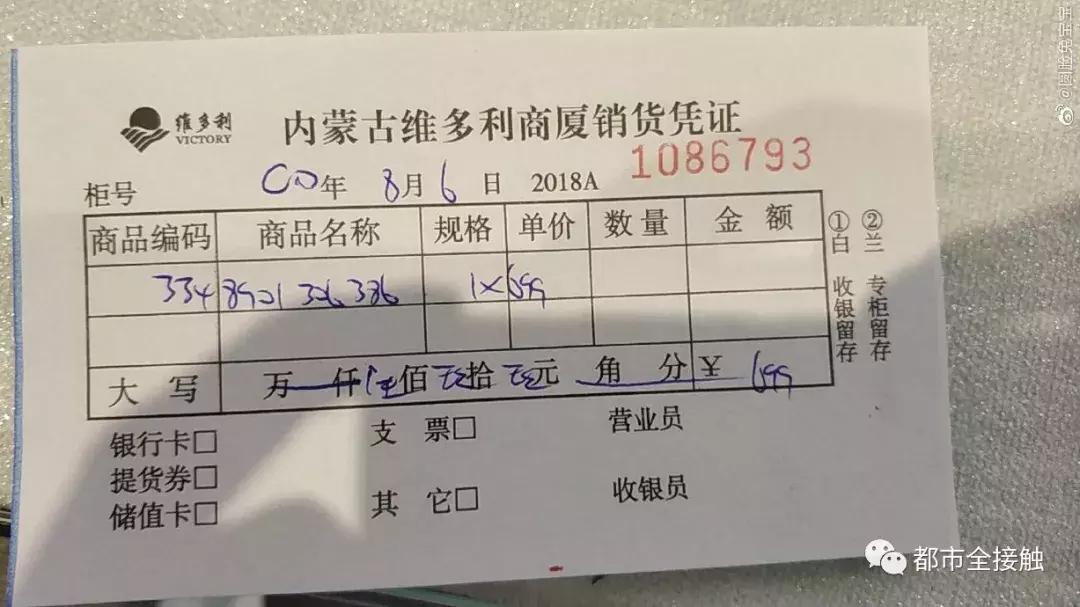 维多利
VICTORY
内蒙古维多利商厦销货凭证
1086793
柜号 年 8月6日 2018A
商品编码 商品名称 规格 单价 数量 金额
334 8901326386 1×699
大写 万仟 佰 拾 元角分 ¥ 699
银行卡□ 支票□ 营业员
提货券□
储值卡□ 其它□ 收银员
①白 收银留存
②兰 专柜留存
都市全接触